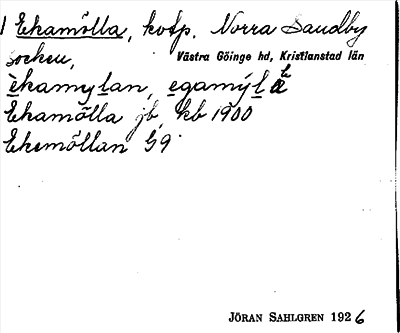 1 Ekamölla, kvtp. Norra Sandby
socken, Västra Göinge hd, Kristianstad län
èkamylan, egamýlæ
Ekamölla jb, kb 1900
Ekemöllan G9
JÖRAN SAHLGREN 1926